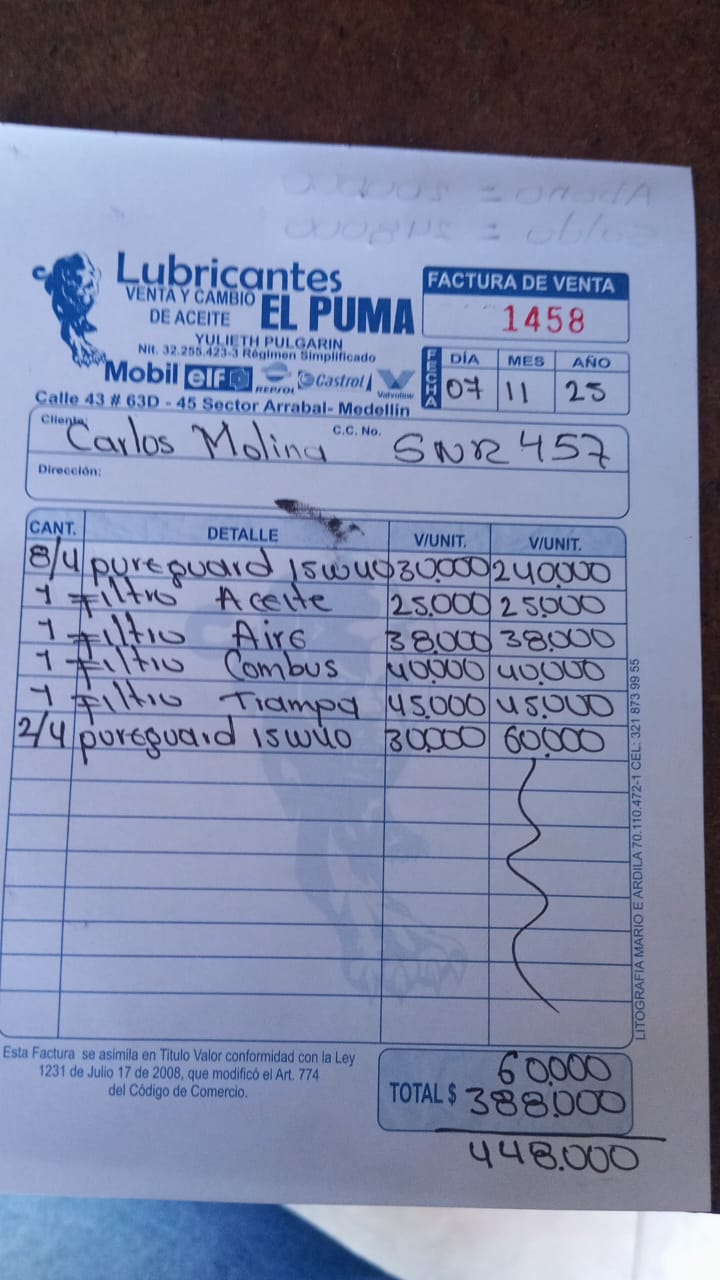 Lubricantes
VENTA Y CAMBIO
DE ACEITE
EL PUMA
YULIETH PULGARIN
Nit. 32.255.423-3 Régimen Simplificado
Mobil elf REPSOL Castrol Valvoline
Calle 43 # 63D - 45 Sector Arrabal- Medellín
FACTURA DE VENTA
1458
FECHA
DÍA MES AÑO
07 11 25
Cliente: Carlos Molina C.C. No. SNR457
Dirección:
CANT. DETALLE V/UNIT. V/UNIT.
8/4 pureguard 15W40 30.000 240.000
1 Filtro Aceite 25.000 25.000
1 Filtro Aire 38.000 38.000
1 Filtro Combus 40.000 40.000
1 Filtro Trampa 45.000 45.000
2/4 pureguard 15W40 30.000 60.000
LITOGRAFIA MARIO E ARDILA 70.110.472-1 CEL: 321 873 99 55
Esta Factura se asimila en Titulo Valor conformidad con la Ley
1231 de Julio 17 de 2008, que modificó el Art. 774
del Código de Comercio.
60.000
TOTAL $ 388.000
448.000